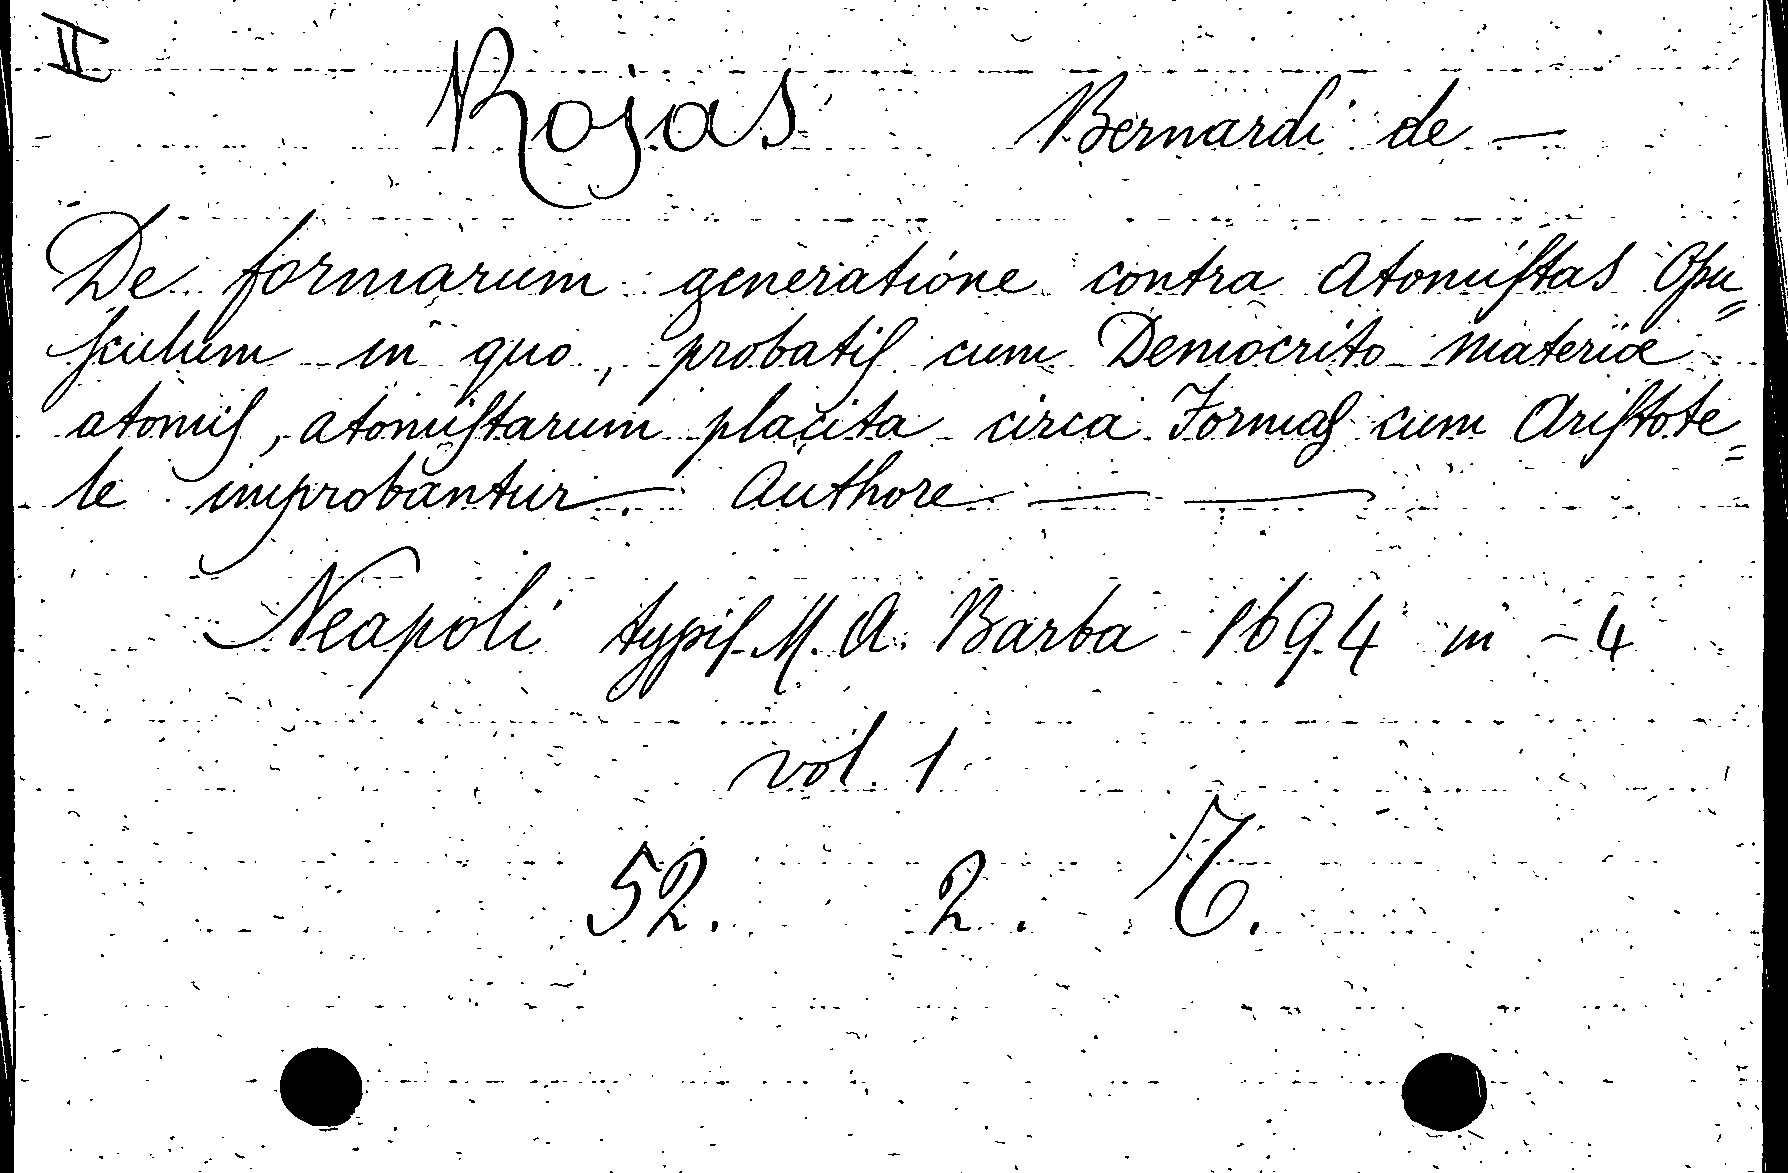 II
Rojas Bernardi de —
De formarum generatione contra Atomiſtas Opu=
ſculum in quo, probatiſ cum Democrito materiæ
atomiſ, atomiſtarum placita circa Formaſ cum Ariſtote=
le improbantur. Authore — —
Neapoli typiſ M. A. Barba 1694 in -4
vol. 1
52. 2. 7.